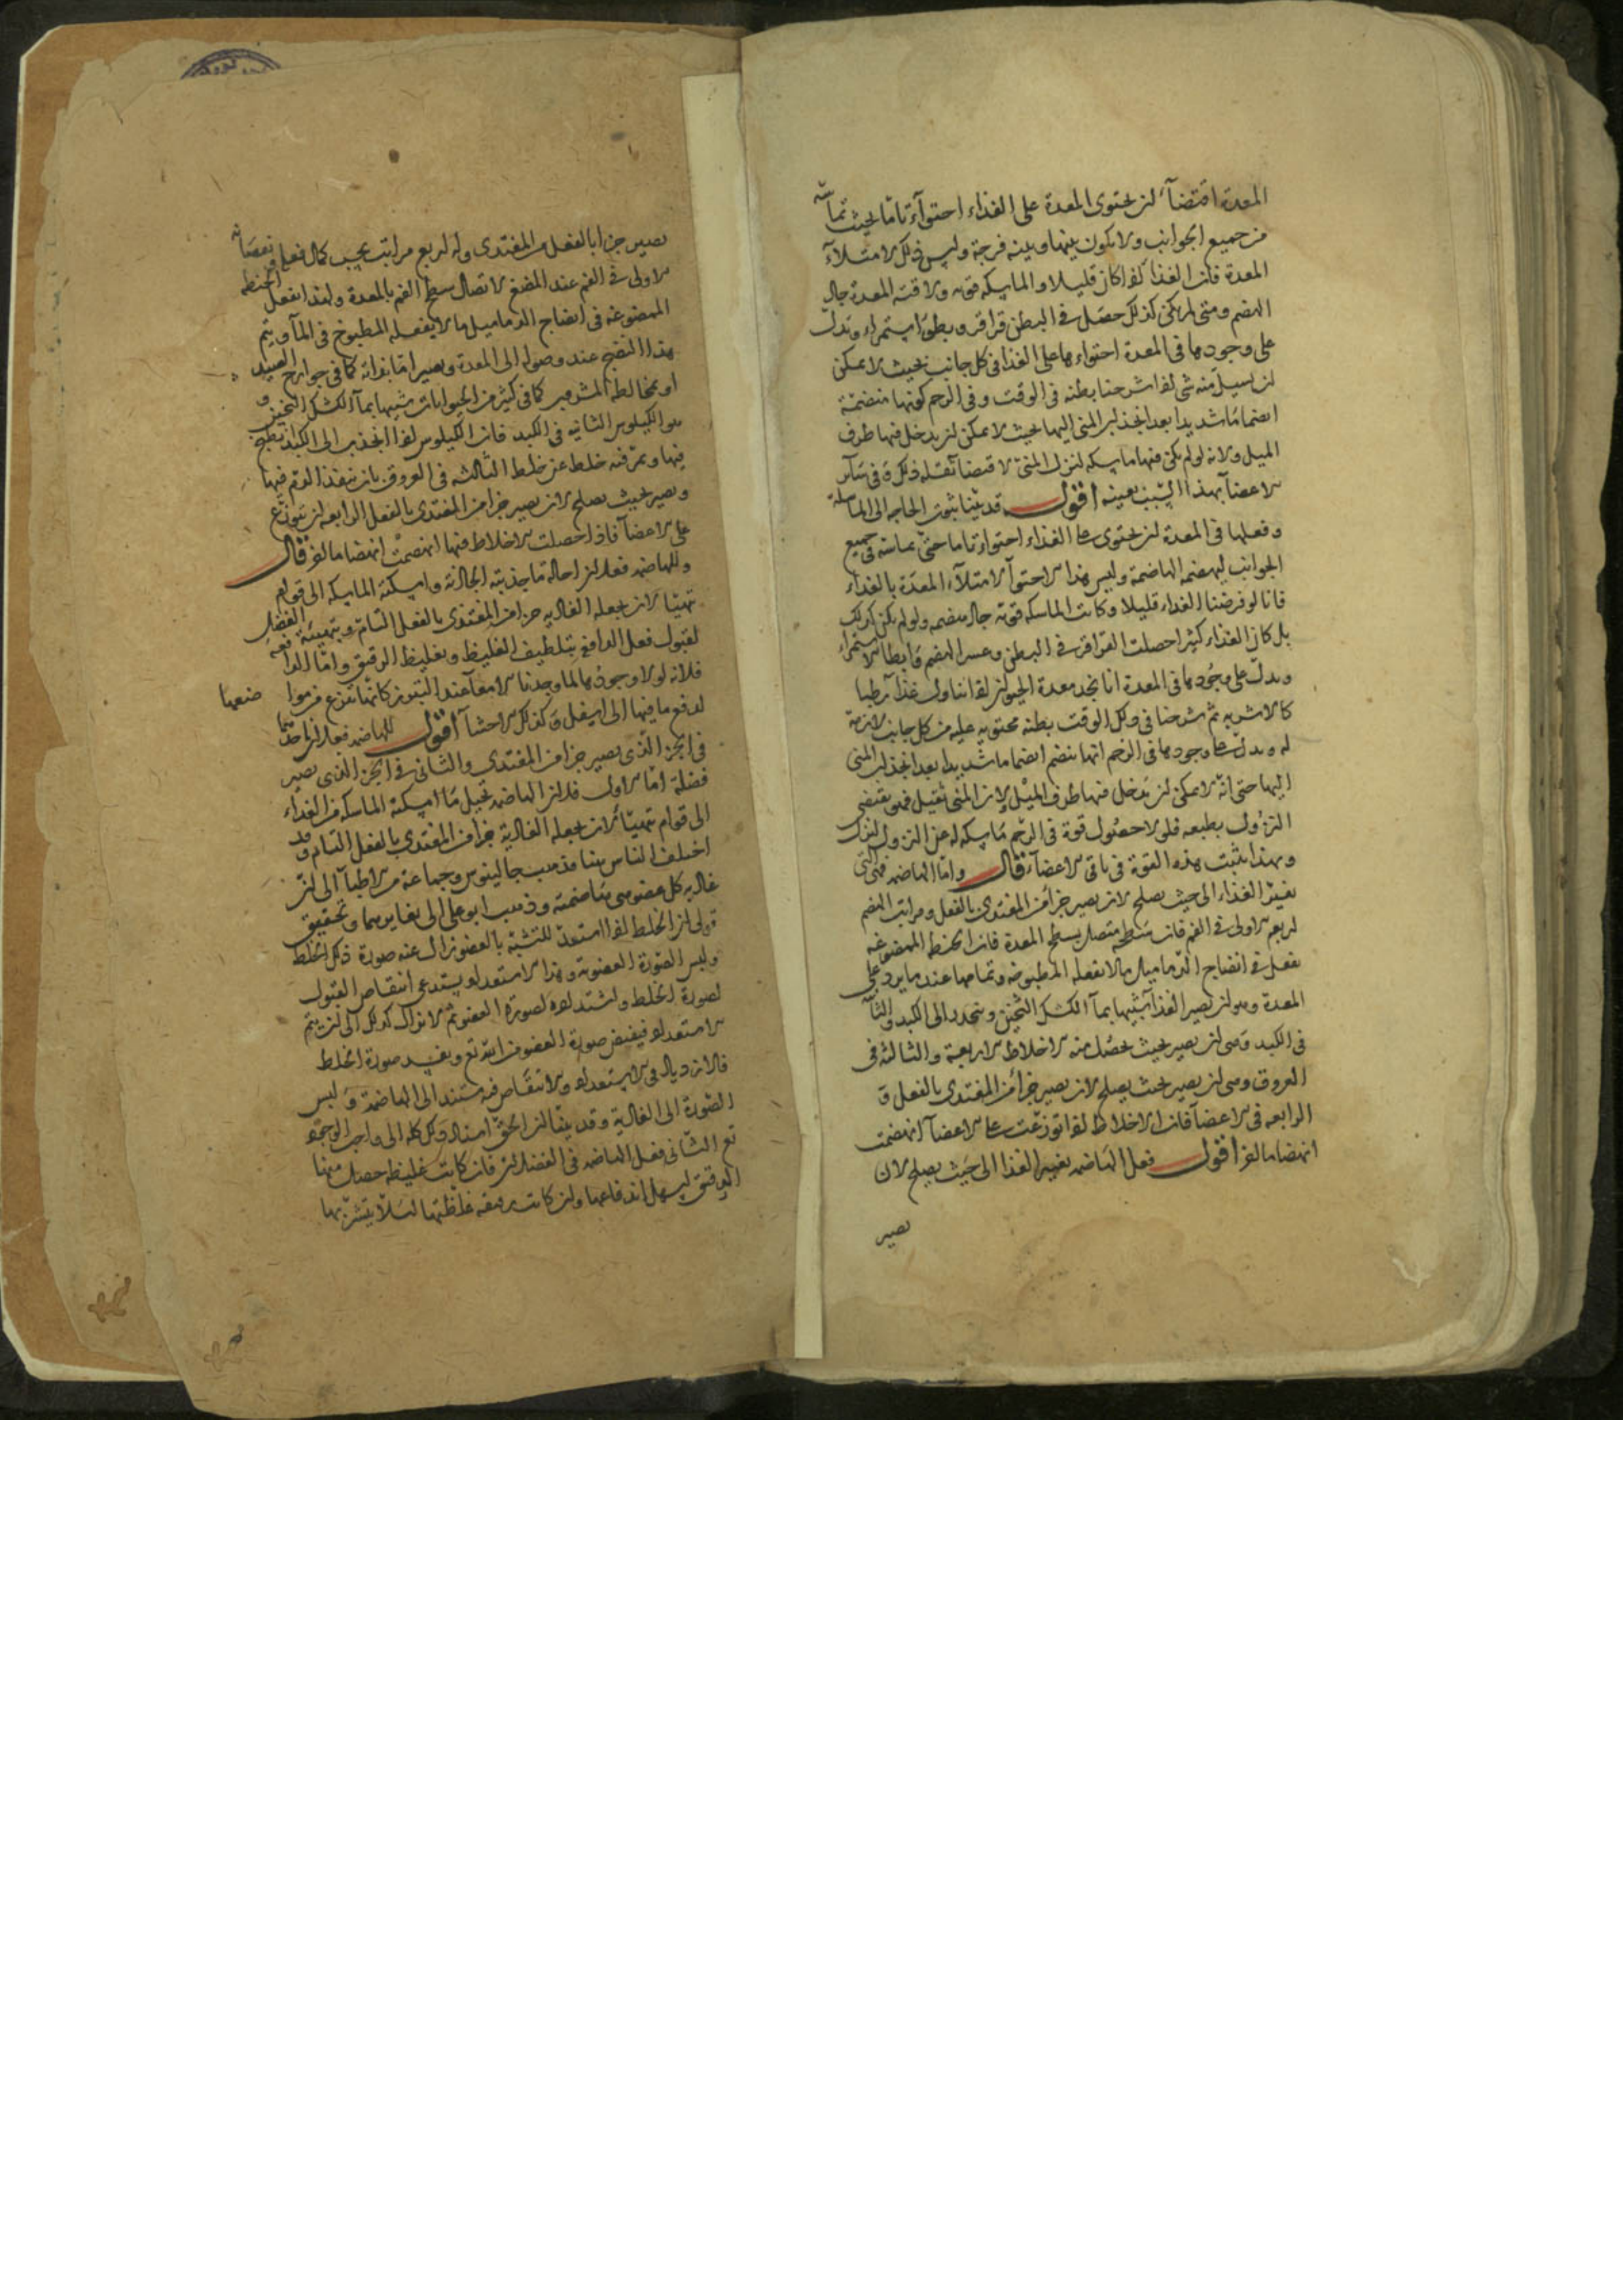 المعدة اقتضآء لن يحتوى المعدة على الغذاء احتوآء تاما بحيث تماسّه
من جميع الجوانب ولا يكون بينها وبينه فرجة وليس ذلك لامتلآء
المعدة فان الغذآء لذا كان قليلا والماسكه قويه ولاقته المعدة جاد
الهضم ومتى لم يكن كذلك حصل فى البطن قراقر وبطؤ استمراء وتدل
على وجودها فى المعدة احتواءها على الغذا فى كل جانب بحيث لا يمكن
لن يسيل منه شى لذا شرحنا بطنه فى الوقت وفى الرحم كونها منضمّة
انضماما شديدا بعد انجذاب المنى اليها بحيث لا يمكن لن يدخل فيها طرف
الميل ولانه لو لم يكن فيها ماسكه لنزل المنىّ لاقتضآ ثقله ذلك وفى سآئر
الاعضآ بهذا السّبب بعينه اقول قد بيّنا ثبوت الحاجه الى الماسكة
وفعلها فى المعدة لن يحتوى على الغذاء احتواء تاما حتى تماسّه فى جميع
الجوانب ليهضمه الهاضمة وليس هذا الاحتوآ لامتلآء المعدة بالغذاء
فانا لو فرضنا الغذاء قليلا وكانت الماسكه قويّه جاد هضمه ولو لم يكن كذلك
بل كان الغذاء كثيرا حصلت القراقر فى البطن وعسر الهضم وابطا الاستمراء
ويدلّ على وجودها فى المعدة انا نجد معدة الحيوان لذا تناول غذآ رطبا
كالاشربه ثم شرحنا فى ذلك الوقت بطنه محتويه عليه من كل جانب لازمة
له ويدلّ على وجودها فى الرحم انها تنضم انضماما شديدا بعد انجذاب المنى
اليها حتى انّه لا يمكن لن يدخل فيها طرف الميل ولان المنى ثقيل فهو يقتضى
النزول بطبعه فلولا حصول قوة فى الرّحم ماسكه له عن النزول لنزل
وبهذا يثبت هذه القوة فى باقى الاعضآء قال وامّا الهاضمه فهى التى
تغيّر الغذاء الى حيث يصلح لان يصير جزأ من المغتدى بالفعل ومراتب الهضم
اربعه الاولى فى الفم فان سطحه متصل بسطح المعدة فان الحنطه الممضوغه
تفعل فى انضاج الدّماميل ما لا تفعله المطبوخه وتمامها عند ما يرد على
المعدة وهو لن يصير الغذآ شبيها بمآ الكشك الثخين وينحدر الى الكبد والثانيه
فى الكبد وهى لن يصير بحيث يحصل منه الاخلاط الاربعة والثالثه فى
العروق وهى لن يصير بحيث يصلح لان يصير جزأ من المغتدى بالفعل و
الرابعه فى الاعضآ فان الاخلاط لذا توزّعت على الاعضآ انهضمت
انهضاما اقول فعل الهاضمه تغيير الغذا الى حيث يصلح لان
يصير
يصير جزأ بالفعل من المغتدى وله اربع مراتب بحسب كمال فعلها ونقصانه
الاولى فى الفم عند المضغ لاتصال سطح الفم بالمعدة ولهذا تفعل الحنطه
الممضوغه فى انضاج الدماميل ما لا يفعله المطبوخ فى المآ ويتم
هذا النضج عند وصوله الى المعدة ويصير امّا بذاته كما فى جوارح الصيد
او بمخالطة المشروب كما فى كثير من الحيوانات شبيها بمآ الكشك الثخين و
هو الكيلوس الثانيه فى الكبد فان الكيلوس لذا انجذب الى الكبد انطبخ
فيها وتميّز فيه خلط عن خلط الثالثه فى العروق بان ينفذ الدم فيها
ويصير بحيث يصلح لان يصير جزأ من المغتدى بالفعل الرابعه لن يتوزّع
على الاعضآ فاذا حصلت الاخلاط فيها انهضمت انهضاما قال
وللهاضمه فعلان احالة ما جذبته الجاذبة وامسكته الماسكه الى قوام
تتهيّأ لان يجعله الغاذيه جزأ من المغتدى بالفعل التامّ وبتهيئة الفضل
لقبول فعل الدافع بتلطيف الغليظ وبغليظ الرقيق وامّا الدافعه
فلانه لولا وجودها لما وجدنا الامعآ عند التبرّز كانّها تنزع من موا ضعها
لدفع ما فيها الى اسفل وكذلك الاحشآ اقول للهاضمه فعلان احدهما
فى الجزء الّذى يصير جزأ من المغتدى والثانى فى الجزء الذى يصير
فضلة امّا الاول فلان الهاضمه تحيل ما امسكته الماسكه من الغذاء
الى قوام تتهيّأ لان يجعله الغاذية جزأ من المغتدى بالفعل التام وقد
اختلف الناس هنا فذهب جالينوس وجماعة من الاطبآ الى لنّ
غاذية كل عضو هى هاضمته وذهب ابو على الى تغايرهما وتحقيق
قولى لن الخلط لذا استعدّ للتشبّه بالعضو زال عنه صورة ذلك الخلط
ولبس الصورة العضويه وهذا الاستعداد يستدعى انتقاص القبول
لصورة الخلط واشتداده لصورة العضو ثم لا يزال كذلك الى لن يتم
الاستعداد فيفيض صورة العضو من الله تع ويفسد صورة الخلط
فالازدياد فى الاستعداد والانتقاص فيه مستند الى الهاضمة ولبس
الصّورة الى الغاذية وقد بيّنا لن الحقّ اسناد ذلك كله الى واجب الوجود
تع الثّانى فعل الهاضمه فى الفضله فان كانت غليظه حصلت منها
الرقيق ليسهل اندفاعها ولن كانت رقيقه غلّظتها لئلا يتشرّبها